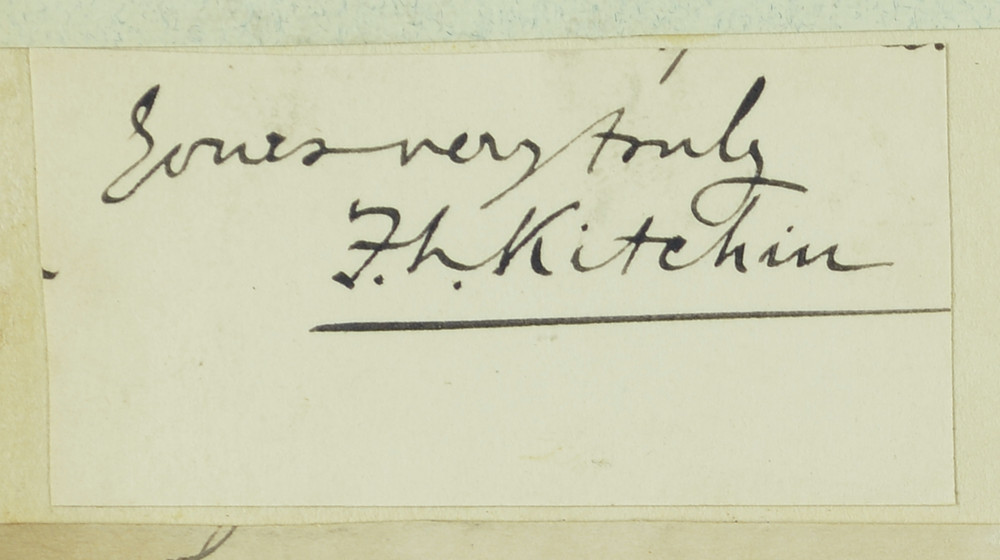 Yours very truly
F. L. Kitchin